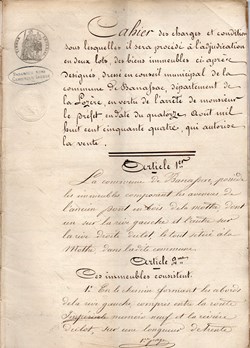 Cahier des charges et condition
sous lesquelles il sera procédé à l'adjudication
en deux lots, des biens immeubles ci-après
désignés, dressé en conseil municipal de la
commune de Banassac, département de
la Lozère, en vertu de l'arrêté de monsieur
le préfet en date du quatorze Août mil
huit cent cinquante quatre, qui autorise
la vente.
Article 1er
La commune de Banassac, possède
des immeubles composant les avenues de
l'ancien pont en bois de la mothe, dont
un sur la rive gauche et l'autre sur
la rive droite du lot le tout situé à la
Mothe dans la dite commune.
Article 2me
Ces immeubles consistent:
1° En le chemin formant les abords
de la rive gauche, compris entre la route
Impériale numéro neuf et la rivière
du lot, sur une longueur de trente